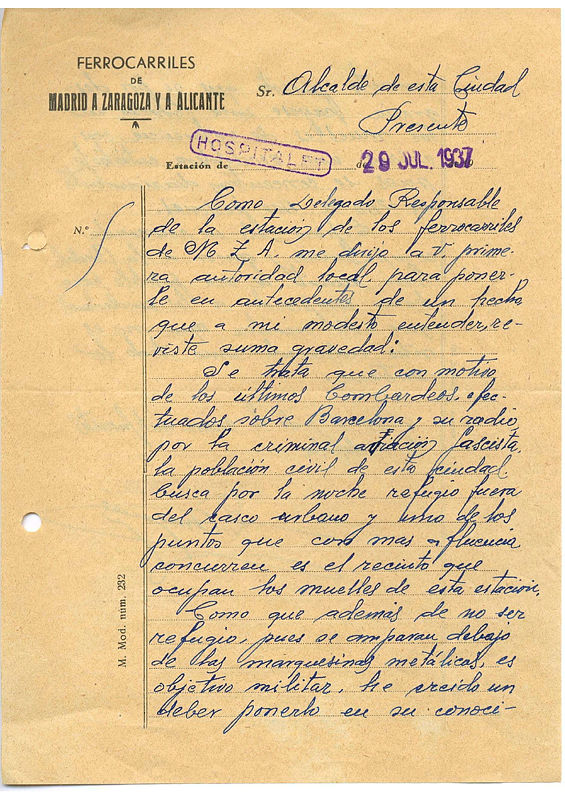 FERROCARRILES
DE
MADRID A ZARAGOZA Y A ALICANTE
Sr. Alcalde de esta Ciudad
Presente
HOSPITALET
Estación de d 29 JUL. 1937
N.º
Como Delegado Responsable
de la estación de los ferrocarriles
de M Z A, me dirijo a V. prime-
ra autoridad local, para poner-
le en antecedentes de un hecho
que a mi modesto entender, re-
viste suma gravedad:
Se trata que con motivo
de los últimos bombardeos, efec-
tuados sobre Barcelona y su radio,
por la criminal aviación fascista,
la población civil de esta ciudad
busca por la noche refugio fuera
del casco urbano y uno de los
puntos que con mas afluencia
concurren es el recinto que
ocupan los muelles de esta estación,
Como que además de no ser
refugio, pues se amparan debajo
de las marquesinas metálicas, es
objetivo militar, he creido un
deber ponerlo en su conoci-
M. Mod. núm. 232